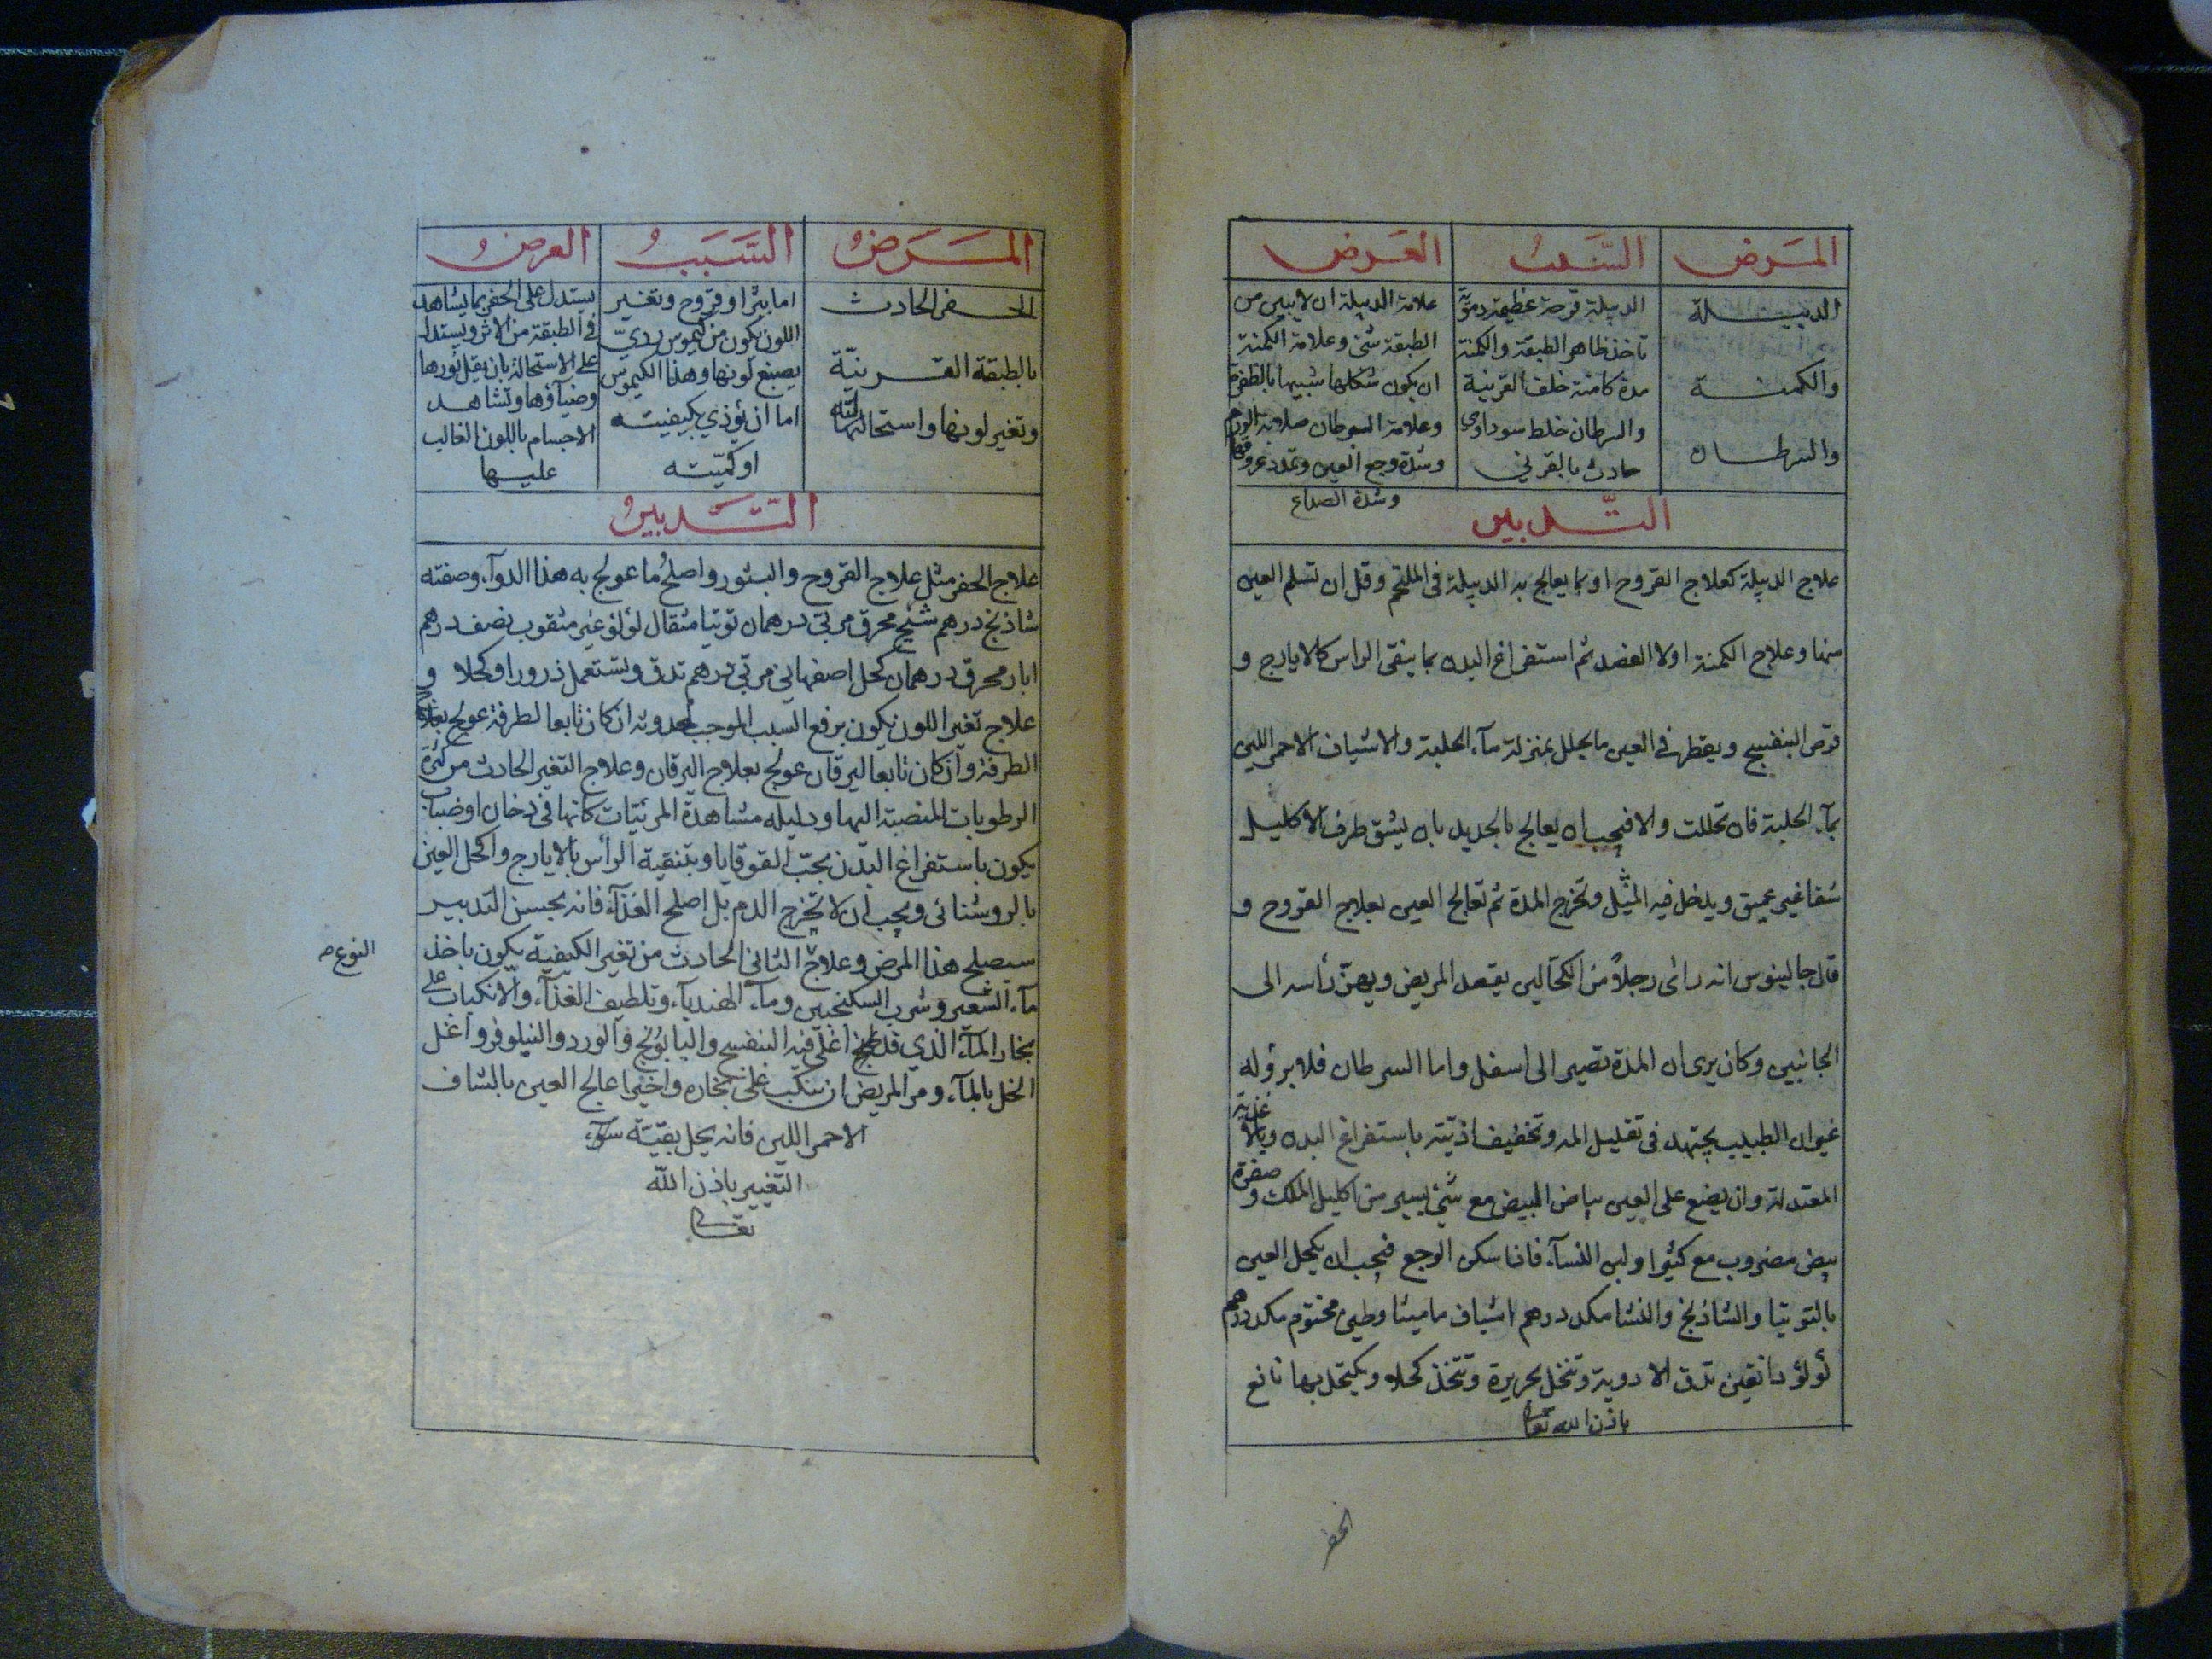 المرض السبب العرض
الدبيلة
والكمنة
والسرطان
الدبيلة قرحة عظيمة دموية
تاخذ ظاهر الطبقة والكمنة
مدة كامنة خلف القرنية
والسرطان خلط سوداوي
حادث بالقرني
علامة الدبيلة ان لا يبين من
الطبقة شئ وعلامة الكمنة
ان يكون شكلها شبيها بالظفرة
وعلامة السرطان صلابة الورم
وشدة وجع العين وتمدد عروقها
وشدة الصداع
التدبير
علاج الدبيلة كعلاج القروح او بما يعالج به الدبيلة فى الملتحم وقل ان تسلم العين
منها وعلاج الكمنة اولا الفصد ثم استفراغ البدن بما ينقى الراس كالايارج و
قرص البنفسج ويقطر فى العين ما يحلل بمنزلة مآء الحلبة والاشياف الاحمر اللين
بمآء الحلبة فان تحللت والا فيجب ان يعالج بالحديد بان يشق طرف الاكليل
شقا غير عميق ويدخل فيه الميل وتخرج المدة ثم تعالج العين بعلاج القروح و
قال جالينوس انه رائ رجلاً من الكحالين يقعد المريض ويهز رأسه الى
الجانبين وكان يرى ان المدة تصير الى اسفل واما السرطان فلا برؤ له
غير ان الطبيب يجتهد فى تقليل المه وتخفيف اذيته باستفراغ البدن وبالاغذية
المعتدلة وان يضع على العين بياض البيض مع شئ يسير من اكليل الملك وصفرة
بيض مضروب مع كثيرا ولبن النسآء فاذا سكن الوجع فيجب ان يكحل العين
بالتوتيا والشاذنج والنشا مكد درهم اشياف ماميثا وطين مختوم مكد درهم
لؤلؤ دانقين تدق الادوية وتنخل بحريرة وتتخذ كحلا ويكتحل بها نافع
باذن الله تعالى
الحفر
المرض السبب العرض
الحفر الحادث
بالطبقة القرنية
وتغير لونها واستحالتها
اما بثرا او قروح وتغير
اللون يكون من كيموس ردي
يصبغ لونها وهذا الكيموس
اما ان يؤذي بكيفيته
او كميته
يستدل على الحفر بما يشاهد
فى الطبقة من الاثر ويستدل
على الاستحالة بان يقل نورها
وضيآؤها وتشاهد
الاجسام باللون الغالب
عليها
التدبير
علاج الحفر مثل علاج القروح والبثور واصلح ما عولج به هذا الدوآء وصفته
شاذنج درهم شيح محرق مربى درهمان توتيا مثقال لؤلؤ غير مثقوب نصف درهم
ابار محرق درهمان كحل اصفهاني مربى درهم تدق وتستعمل ذرورا وكحلا و
علاج تغير اللون يكون برفع السبب الموجب لحدوثه ان كان تابعا لطرفة عولج بعلاج
الطرفة وان كان تابعا ليرقان عولج بعلاج اليرقان وعلاج التغير الحادث من كثرة
الرطوبات المنصبة اليها ودليله مشاهدة المرئيات كانها فى دخان او ضباب
يكون باستفراغ البدن بحب القوقايا وبتنقية الرأس بالايارج واكحل العين
بالروشنائى ويجب ان لا تخرج الدم بل اصلح الغذآء فانه بحسن التدبير
سيصلح هذا المرض وعلاج الثانى الحادث من تغير الكيفية يكون باخذ
النوع ص
مآء الشعير وشرب السكنجبين ومآء الهندبآء وتلطيف الغذآء والانكباب على
بخار المآء الذي قد طبخ اغلى فيه البنفسج والبابونج والورد والنيلوفر واغل
الخل بالمآء ومر المريض ان ينكب على بخاره واخيرا عالج العين بالشاف
الاحمر اللين فانه يحل بقية سوء
التغيير باذن الله
تعالى